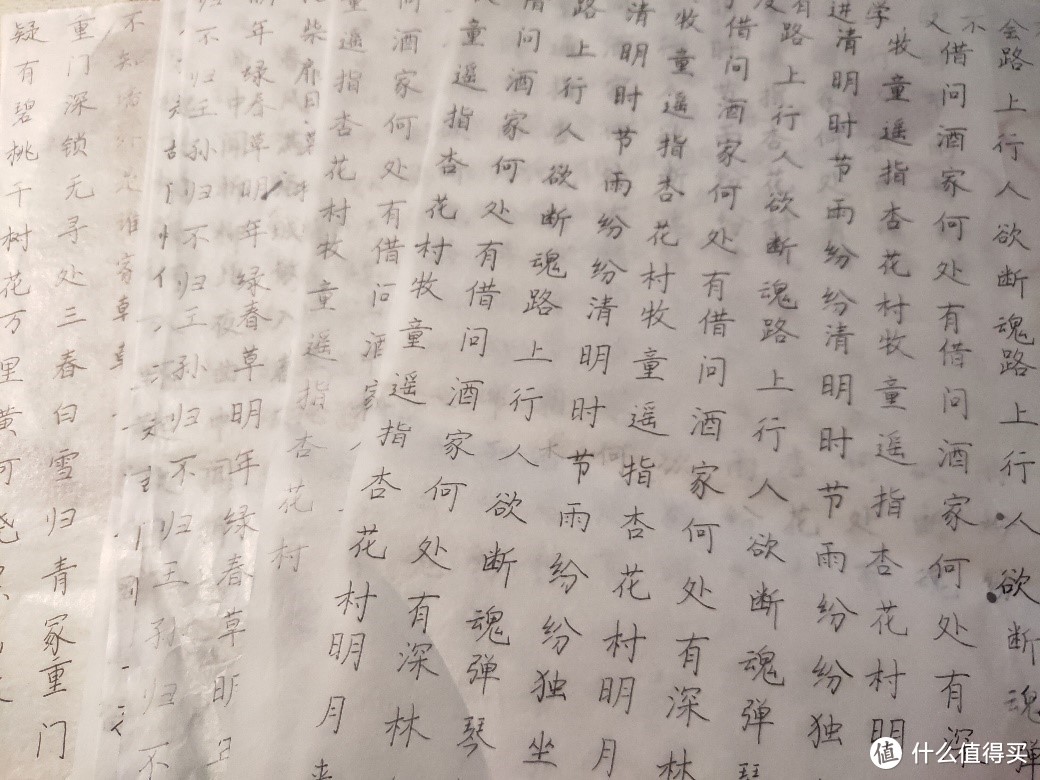 会路上行人欲断魂路上行人欲断魂弹
不借问酒家何处有借问酒家何处有深
学牧童遥指杏花村牧童遥指杏花村明
进清明时节雨纷纷清明时节雨纷纷独
路上行人欲断魂路上行人欲断魂弹
借问酒家何处有借问酒家何处有深林
牧童遥指杏花村牧童遥指杏花村明月
清明时节雨纷纷清明时节雨纷纷独坐
路上行人欲断魂路上行人欲断魂弹琴
问酒家何处有借问酒家何处有深林
童遥指杏花村牧童遥指杏花村明月
酒家何处有借问酒家
遥指杏花村牧童遥指杏花村
柴扉日
年绿春草明年绿春草明年绿春草明
不归王孙归不归王孙归不归王孙归不
不知 谁家
重门深锁无寻处三春白雪归青冢重门
疑有碧桃千树花万里黄河绕
值 什么值得买